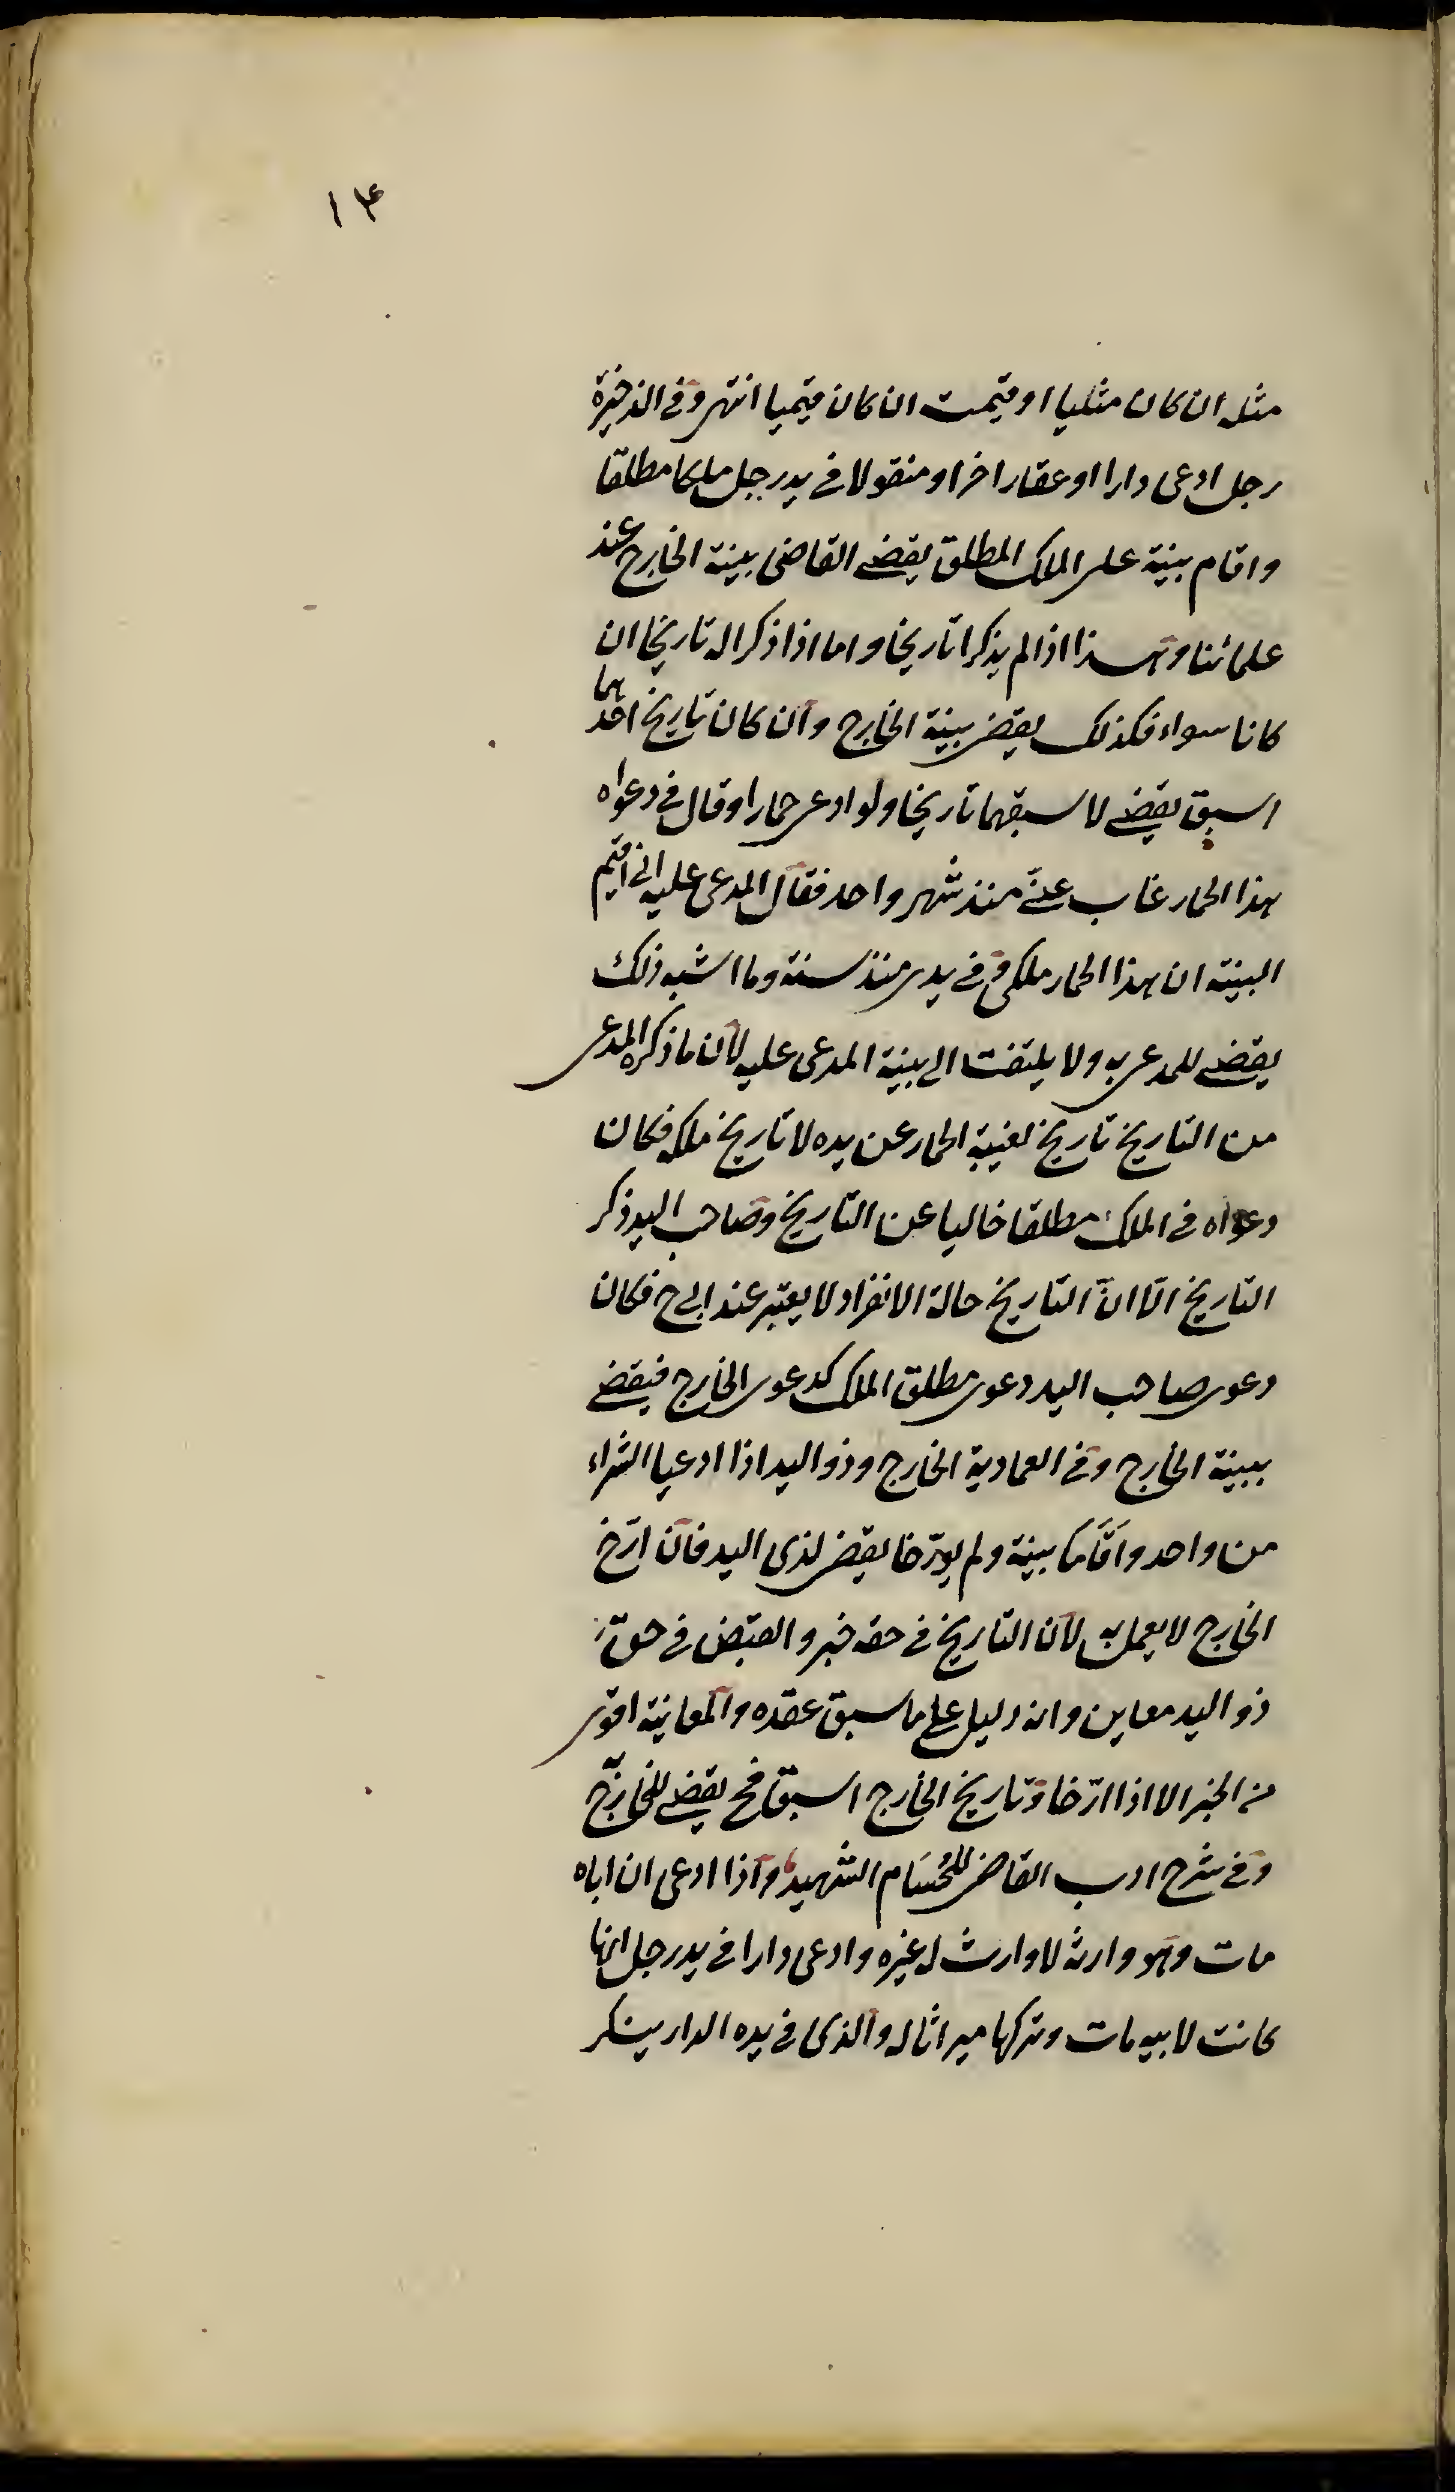 ١٤
مثله ان كان مثليا او قيمته ان كان قيميا انتهى وفى الذخيرة
رجل ادعى دارا او عقارا اخر او منقولا فى يد رجل ملكا مطلقا
واقام بينة على الملك المطلق يقضى القاضى ببينة الخارج عند
علمائنا وهذا اذا لم يذكرا تاريخا واما اذا ذكرا له تاريخا ان
كانا سواء فكذلك يقضى ببينة الخارج وان كان تاريخ احدهما
اسبق يقضى لاسبقهما تاريخا ولو ادعى حمارا وقال فى دعواه
هذا الحمار غاب عنى منذ شهر واحد فقال المدعى عليه انى اقيم
البينة ان هذا الحمار ملكى وفى يدى منذ سنة وما اشبه ذلك
يقضى للمدعى به ولا يلتفت الى بينة المدعى عليه لان ما ذكره المدعى
من التاريخ تاريخ لغيبة الحمار عن يده لا تاريخ ملكه فكان
دعواه فى الملك مطلقا خاليا عن التاريخ وصاحب اليد ذكر
التاريخ الا انّ التاريخ حالة الانفراد لا يعتبر عند ابى ح فكان
دعوى صاحب اليد دعوى مطلق الملك كدعوى الخارج فيقضى
ببينة الخارج وفى العمادية الخارج وذو اليد اذا ادعيا الشراء
من واحد واقاما بينة ولم يورّخا يقضى لذى اليد فان ارّخ
الخارج لا يعمل به لان التاريخ فى حقه خبر والقبض فى حق
ذو اليد معاين وانه دليل على ما سبق عقده والمعاينة اقوى
من الخبر الا اذا ارّخا وتاريخ الخارج اسبق فح يقضى للخارج
وفى شرح ادب القاضى للحُسَام الشهيد واذا ادعى ان اباه
مات وهو وارثه لا وارث له غيره وادعى دارا فى يد رجل انها
كانت لابيه مات وتركها ميراثا له والذى فى يده الدار ينكر